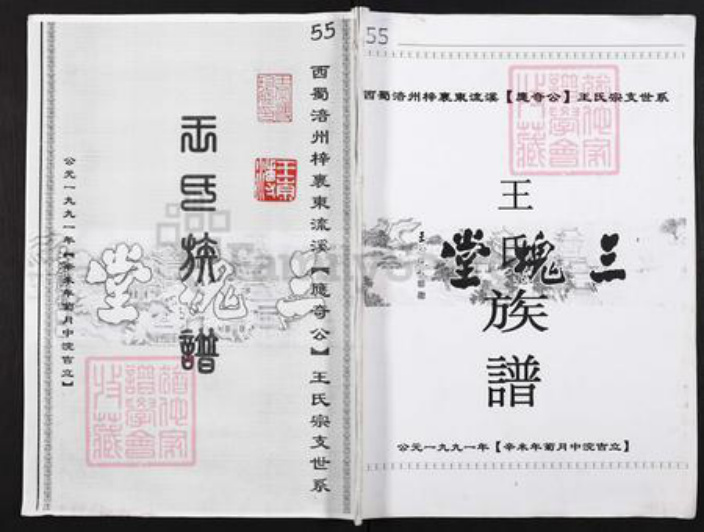 55
西蜀涪州梓裏東流溪【應奇公】王氏宗支世系
王氏族譜
三槐堂
公元一九九一年【辛未年菊月中浣吉立】
55
西蜀涪州梓裏東流溪【應奇公】王氏宗支世系
王氏族譜
三槐堂
公元一九九一年【辛未年菊月中浣吉立】